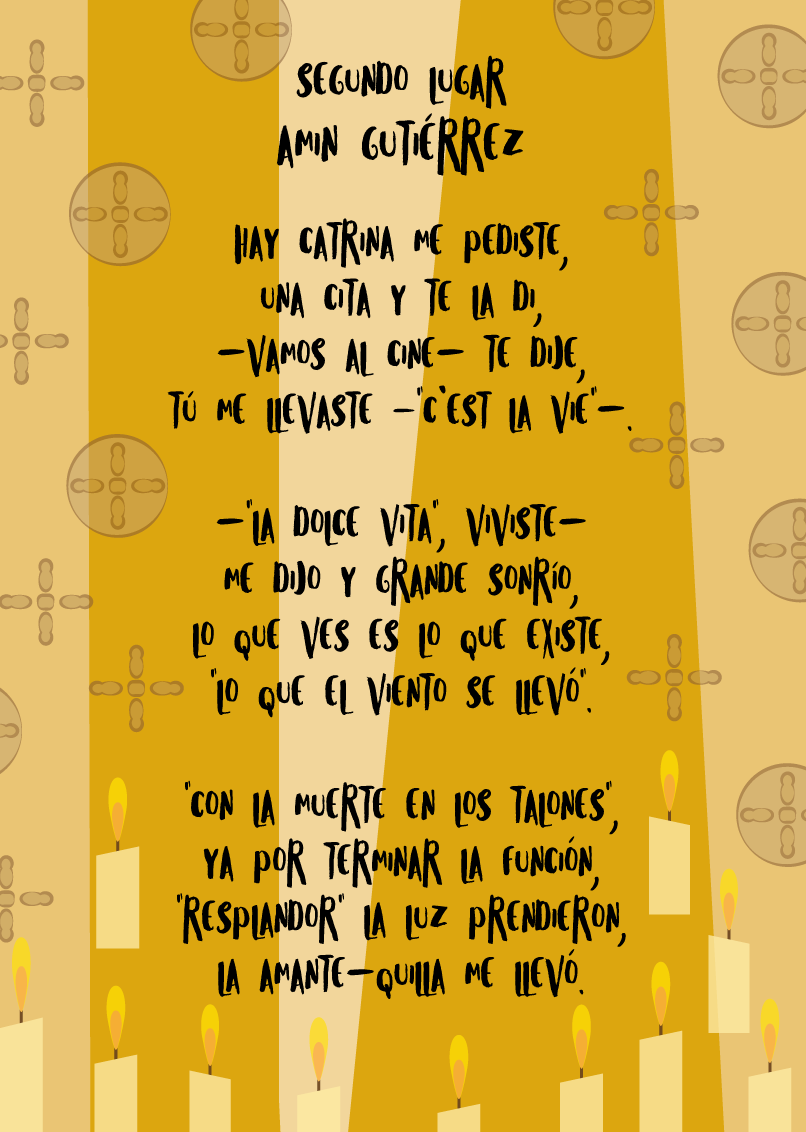 SEGUNDO LUGAR
AMIN GUTIÉRREZ
HAY CATRINA ME PEDISTE,
UNA CITA Y TE LA DI,
—VAMOS AL CINE— TE DIJE,
TÚ ME LLEVASTE —"C'EST LA VIE"—.
—"LA DOLCE VITA", VIVISTE—
ME DIJO Y GRANDE SONRÍO,
LO QUE VES ES LO QUE EXISTE,
"LO QUE EL VIENTO SE LLEVÓ".
"CON LA MUERTE EN LOS TALONES",
YA POR TERMINAR LA FUNCIÓN,
"RESPLANDOR" LA LUZ PRENDIERON,
LA AMANTE—QUILLA ME LLEVÓ.